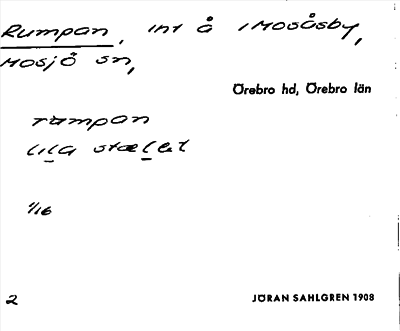 Rumpan, int å i Mosåsby,
Mosjö sn,
Örebro hd, Örebro län
rампon
lila stället
1/16
2 JÖRAN SAHLGREN 1908